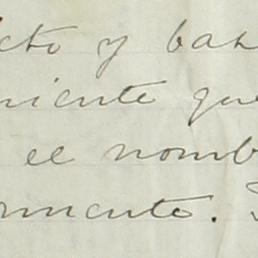 cto y bas
niente que
el nomb
rmento.